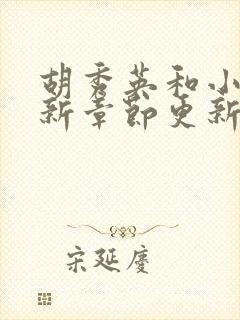 胡秀英和小
新章节更新
宋延廑